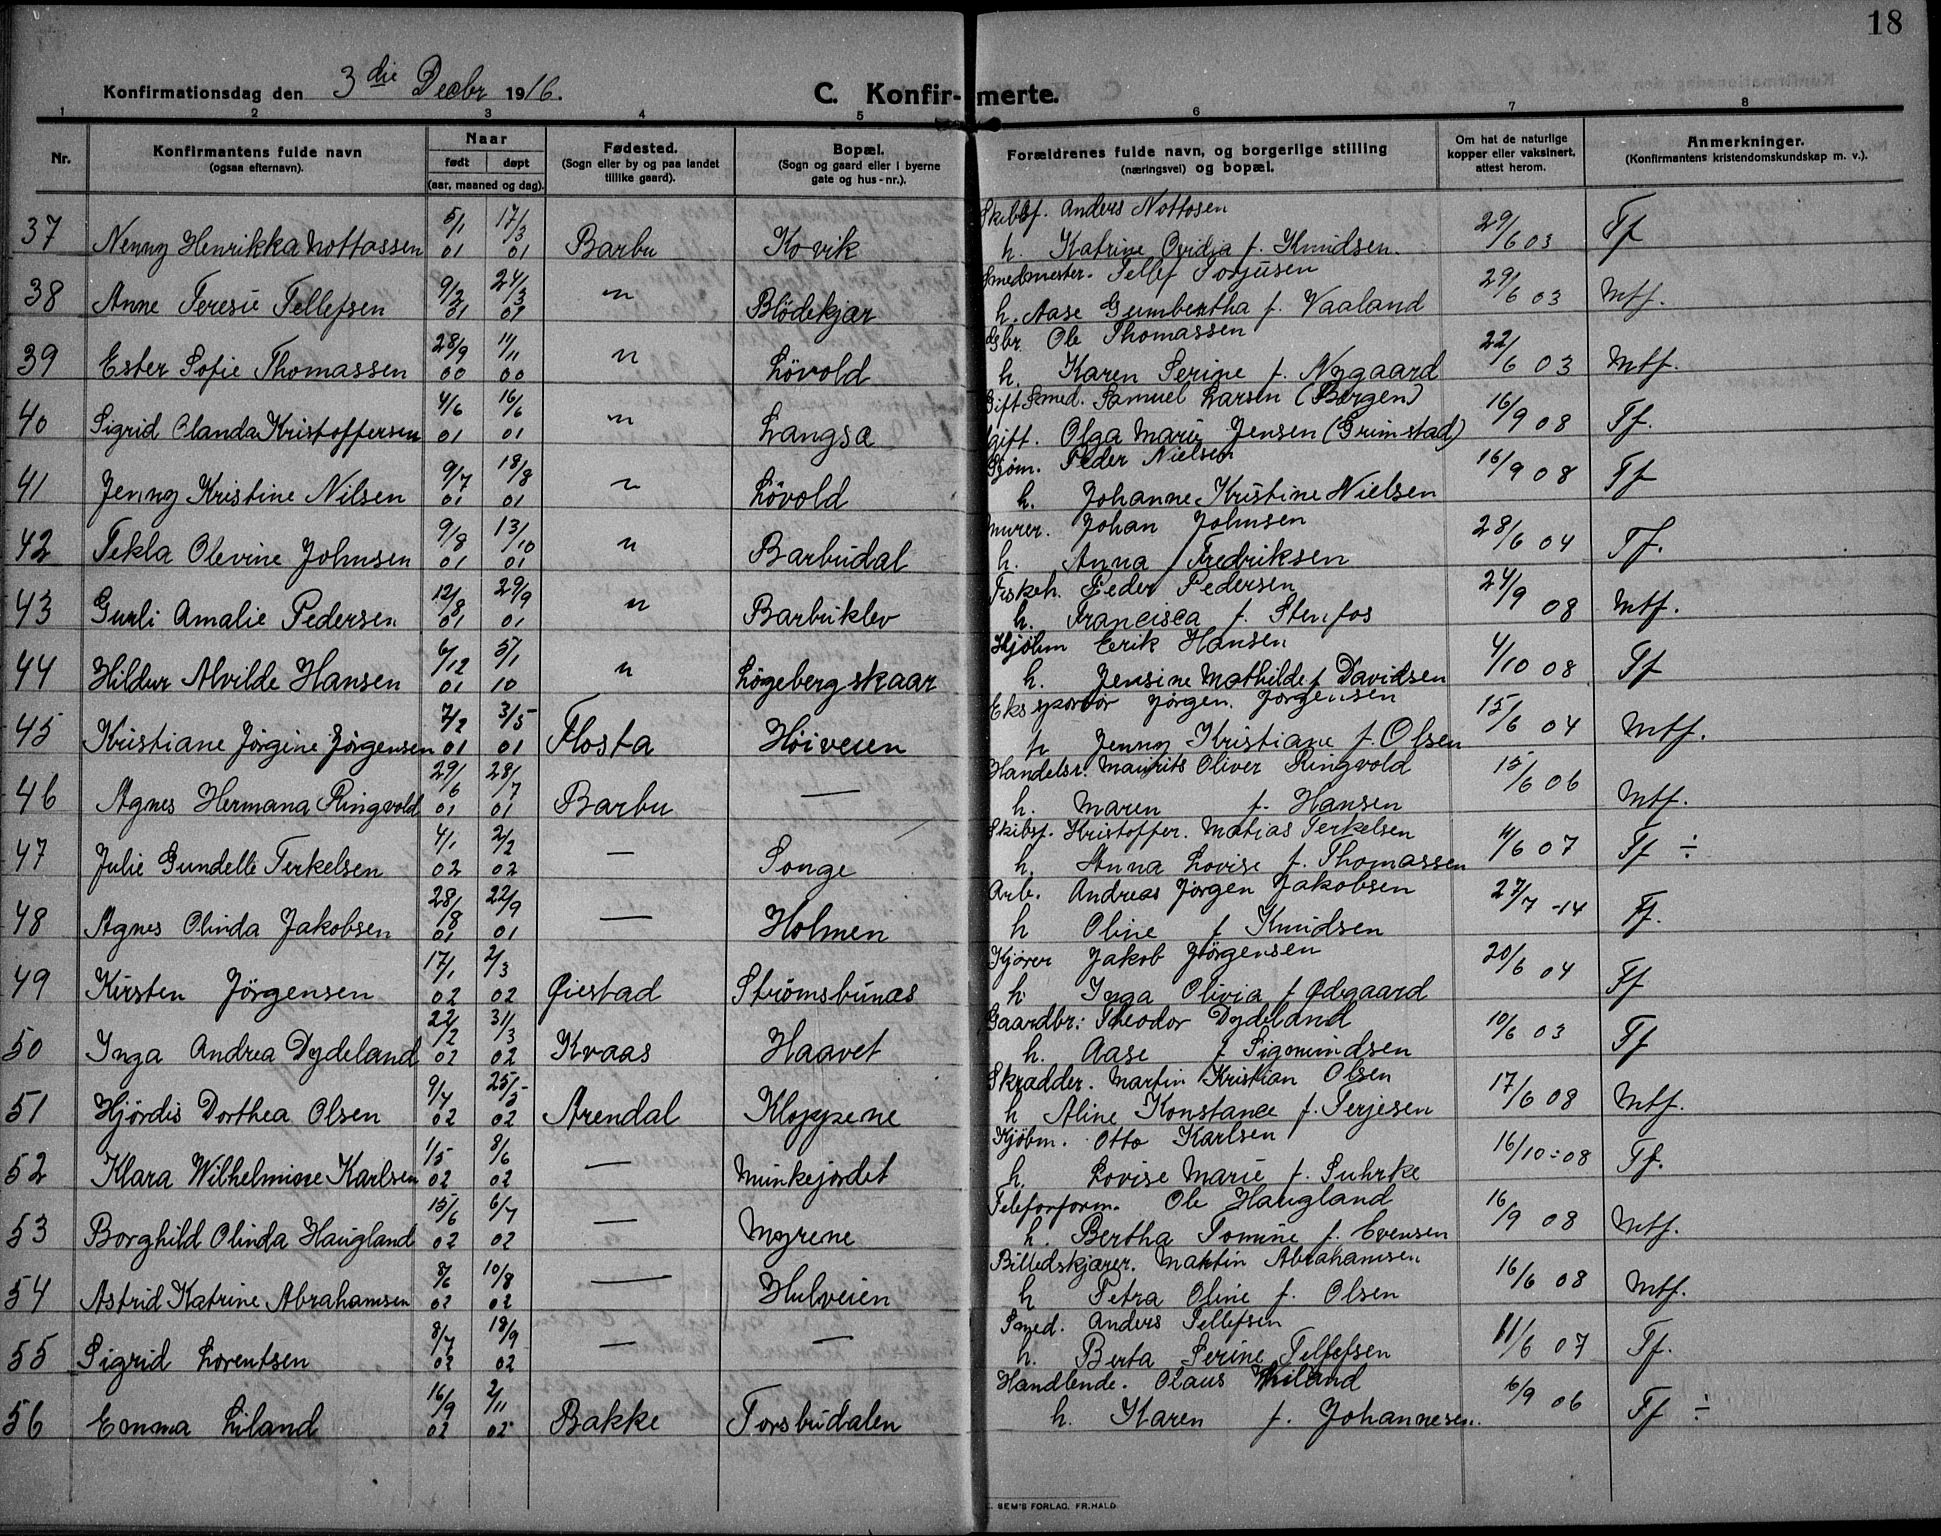 18
Konfirmationsdag den 3die Decbr 1916.
C. Konfirmerte.
1 2 3 4 5 6 7 8
Nr.
Konfirmantens fulde navn
(ogsaa efternavn).
Naar
født døpt
(aar, maaned og dag).
Fødested.
(Sogn eller by og paa landet
tillike gaard).
Bopæl.
(Sogn og gaard eller i byerne
gate og hus-nr.).
Forældrenes fulde navn, og borgerlige stilling
(næringsvei) og bopæl.
Om hat de naturlige
kopper eller vaksinert,
attest herom.
Anmerkninger.
(Konfirmantens kristendomskundskap m. v.).
37 Nenny Henrikka Nottossen 5/1 01 17/3 01 Barbu Kovik Skibsf. Anders Nottosen
h. Katrine Ovidia f. Knudsen. 29/6 03 Tf
38 Anne Teresie Tellefsen 9/2 01 24/3 01 " Blödekjær Smedmester. Tellef Torjusen
h. Aase Gumbertha f. Vaaland 29/6 03 Mtf.
39 Ester Sofie Thomassen 28/9 00 11/11 00 " Lövold Gbr. Ole Thomassen
h. Karen Serine f. Nygaard 22/6 03 Mtf.
40 Sigrid Olanda Kristoffersen 4/6 01 16/6 01 " Langsæ Gift Smed. Samuel Larsen (Bergen)
gift. Olga Marie Jensen (Grimstad) 16/9 08 Tf.
41 Jenny Kristine Nilsen 9/7 01 18/8 01 " Lövold Sjøm. Peder Nielsen
h. Johanne Kristine Nielsen 16/9 08 Tf
42 Tekla Olevine Johnsen 9/8 01 13/10 01 " Barbudal Murer. Johan Johnsen
h. Anna Fredriksen 28/6 04 Tf.
43 Gurli Amalie Pedersen 12/8 01 29/9 01 " Barbuklev Fiskeh. Peder Pedersen
h. Francisca f. Stenfos 24/9 08 Mtf.
44 Hildur Alvilde Hansen 6/12 01 5/1 10 " Lögebergskaar Kjöbm Erik Hansen
h. Jensine Mathilde f Davidsen 4/10 08 Tf
45 Kristiane Jörgine Jörgensen 7/2 01 3/5 01 Flosta Höiveien Eksportør Jörgen. Jörgensen
h Jenny Kristiane f. Olsen 15/6 04 Mtf.
46 Agnes Hermana Ringvold 29/6 01 28/7 01 Barbu — Handelsr. Maurits Oliver Ringvold
h. Maren f. Hansen 15/6 06 Mtf.
47 Julie Gundelle Terkelsen 4/1 02 2/2 02 — Songe Skibsf. Kristoffer. Matias Terkelsen
h. Anna Lovise f. Thomassen 11/6 07 Tf ÷
48 Agnes Olinda Jakobsen 28/8 01 22/9 01 — Holmen Arb. Andreas Jörgen Jakobsen
h Oline f Knudsen 27/7 -14 Tf.
49 Kirsten Jörgensen 17/1 02 2/3 02 Øiestad Strömsbunæs Kjører Jakob Jörgensen
h. Inga Olivia f Ödegaard 20/6 04 Tf
50 Inga Andrea Dydeland 22/2 02 31/3 02 Kvaas Haavet Gaardbr: Theodor Dydeland
h. Aase f Sigmundsen 10/6 03 Tf
51 Hjördis Dorthea Olsen 9/4 02 25/5 02 Arendal Kloppene Skrædder. Martin Kristian Olsen
h Aline Konstance f. Terjesen 17/6 08 Mtf.
52 Klara Wilhelmine Karlsen 1/5 02 8/6 02 — Munkejordet Kjöbm. Otto Karlsen
h. Lovise Marie f. Suhrke 16/10-08 Tf.
53 Borghild Olinda Haugland 15/6 02 6/7 02 — Myrene Telefonform. Ole Haugland
h. Bertha Tomine f. Evensen 16/9 08 Mtf.
54 Astrid Katrine Abrahamsen 8/6 02 10/8 02 — Hulveien Billedskjærer. Martin Abrahamsen
h Petra Oline f. Olsen 16/6 08 Mtf.
55 Sigrid Lorentsen 8/7 02 18/9 02 — — Smed. Anders Tellefsen
h. Berta Serine Tellefsen 11/6 07 Tf.
56 Emma Liland 16/9 02 2/11 02 Bakke Torsbudalen Handlende. Olaus Liland
h. Karen f. Johannesen. 6/9 06 Tf ÷
SEM'S FORLAG, FR.HALD